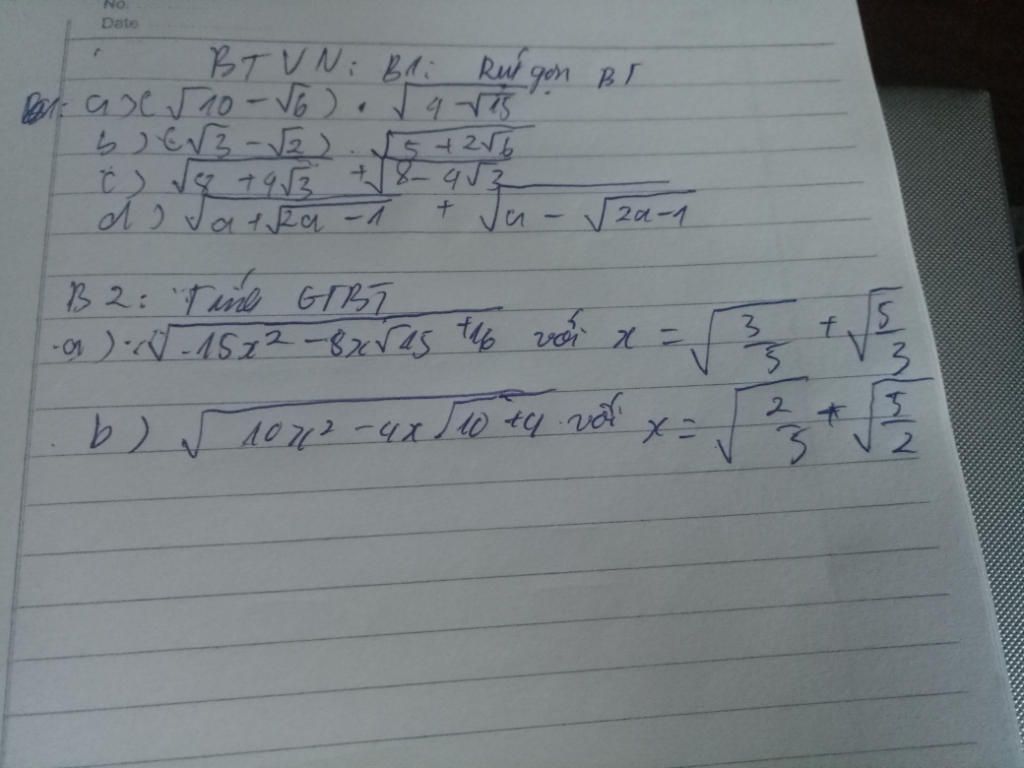 No.
Date
BTVN: B1: Rút gọn BT
B1: a) (√10 - √6) . √(4 - √15)
b) (√3 - √2) . √(5 + 2√6)
c) √(8 + 4√3) + √(8 - 4√3)
d) √(a + √(2a - 1)) + √(a - √(2a - 1))
B2: Tính GTBT
a) √(15x² - 8x√15 + 16) với x = √(3/5) + √(5/3)
b) √(10x² - 4x√10 + 4) với x = √(2/5) + √(5/2)